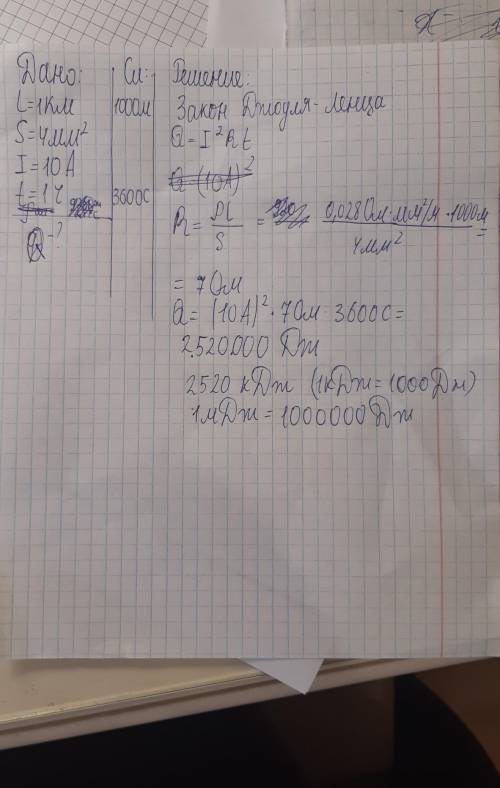 Дано:
L=1км
S=4мм²
I=10А
t=1ч
Q-?
Си:
1000м
3600с
Решение:
Закон Джоуля-Ленца
Q=I²Rt
(10А)²
R = ρl/S = 0,028 Ом·мм²/м·1000м / 4мм² =
= 7 Ом
Q = (10А)²·7 Ом·3600с =
2.520.000 Дж
2520 кДж (1кДж=1000Дж)
1мДж = 1000000 Дж